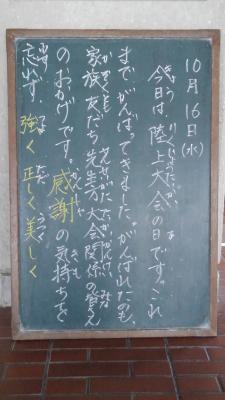 10月16日(水)
今日は、陸上大会の日です。これ
まで、がんばってきました。がんばれたのも、
家族、友だち、先生方、大会関係の皆さん
のおかげです。感謝の気持ちを
忘れず、強く正しく美しく